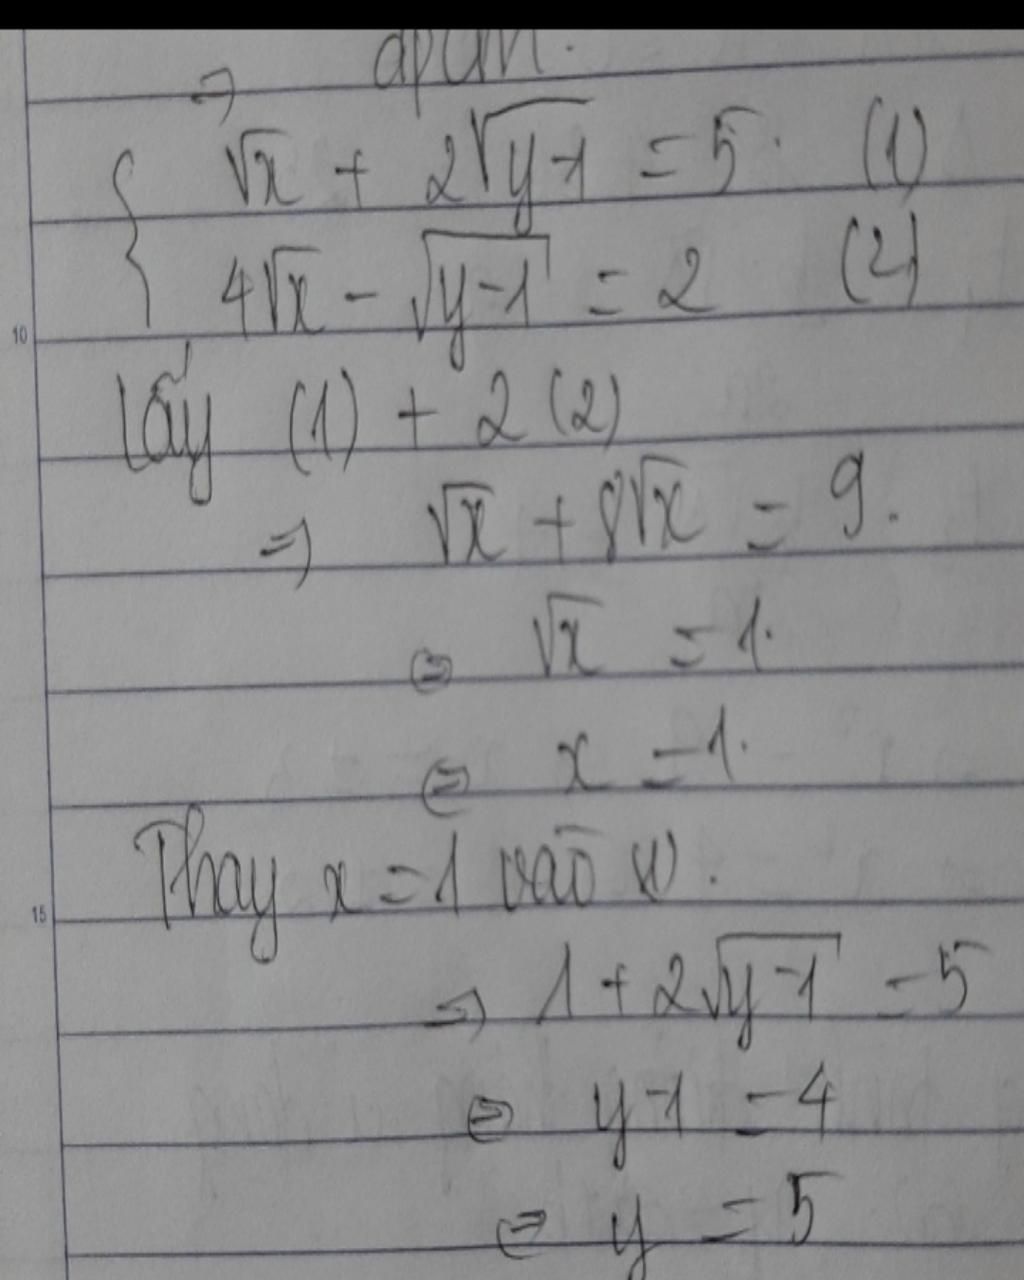 ⇒ đpcm.
√x + 2√(y-1) = 5. (1)
4√x - √(y-1) = 2 (2)
10
Lấy (1) + 2 (2)
⇒ √x + 8√x = 9.
⇔ √x = 1.
⇔ x = 1.
Thay x = 1 vào (1).
15
⇒ 1 + 2√(y-1) = 5
⇔ y-1 = 4
⇔ y = 5